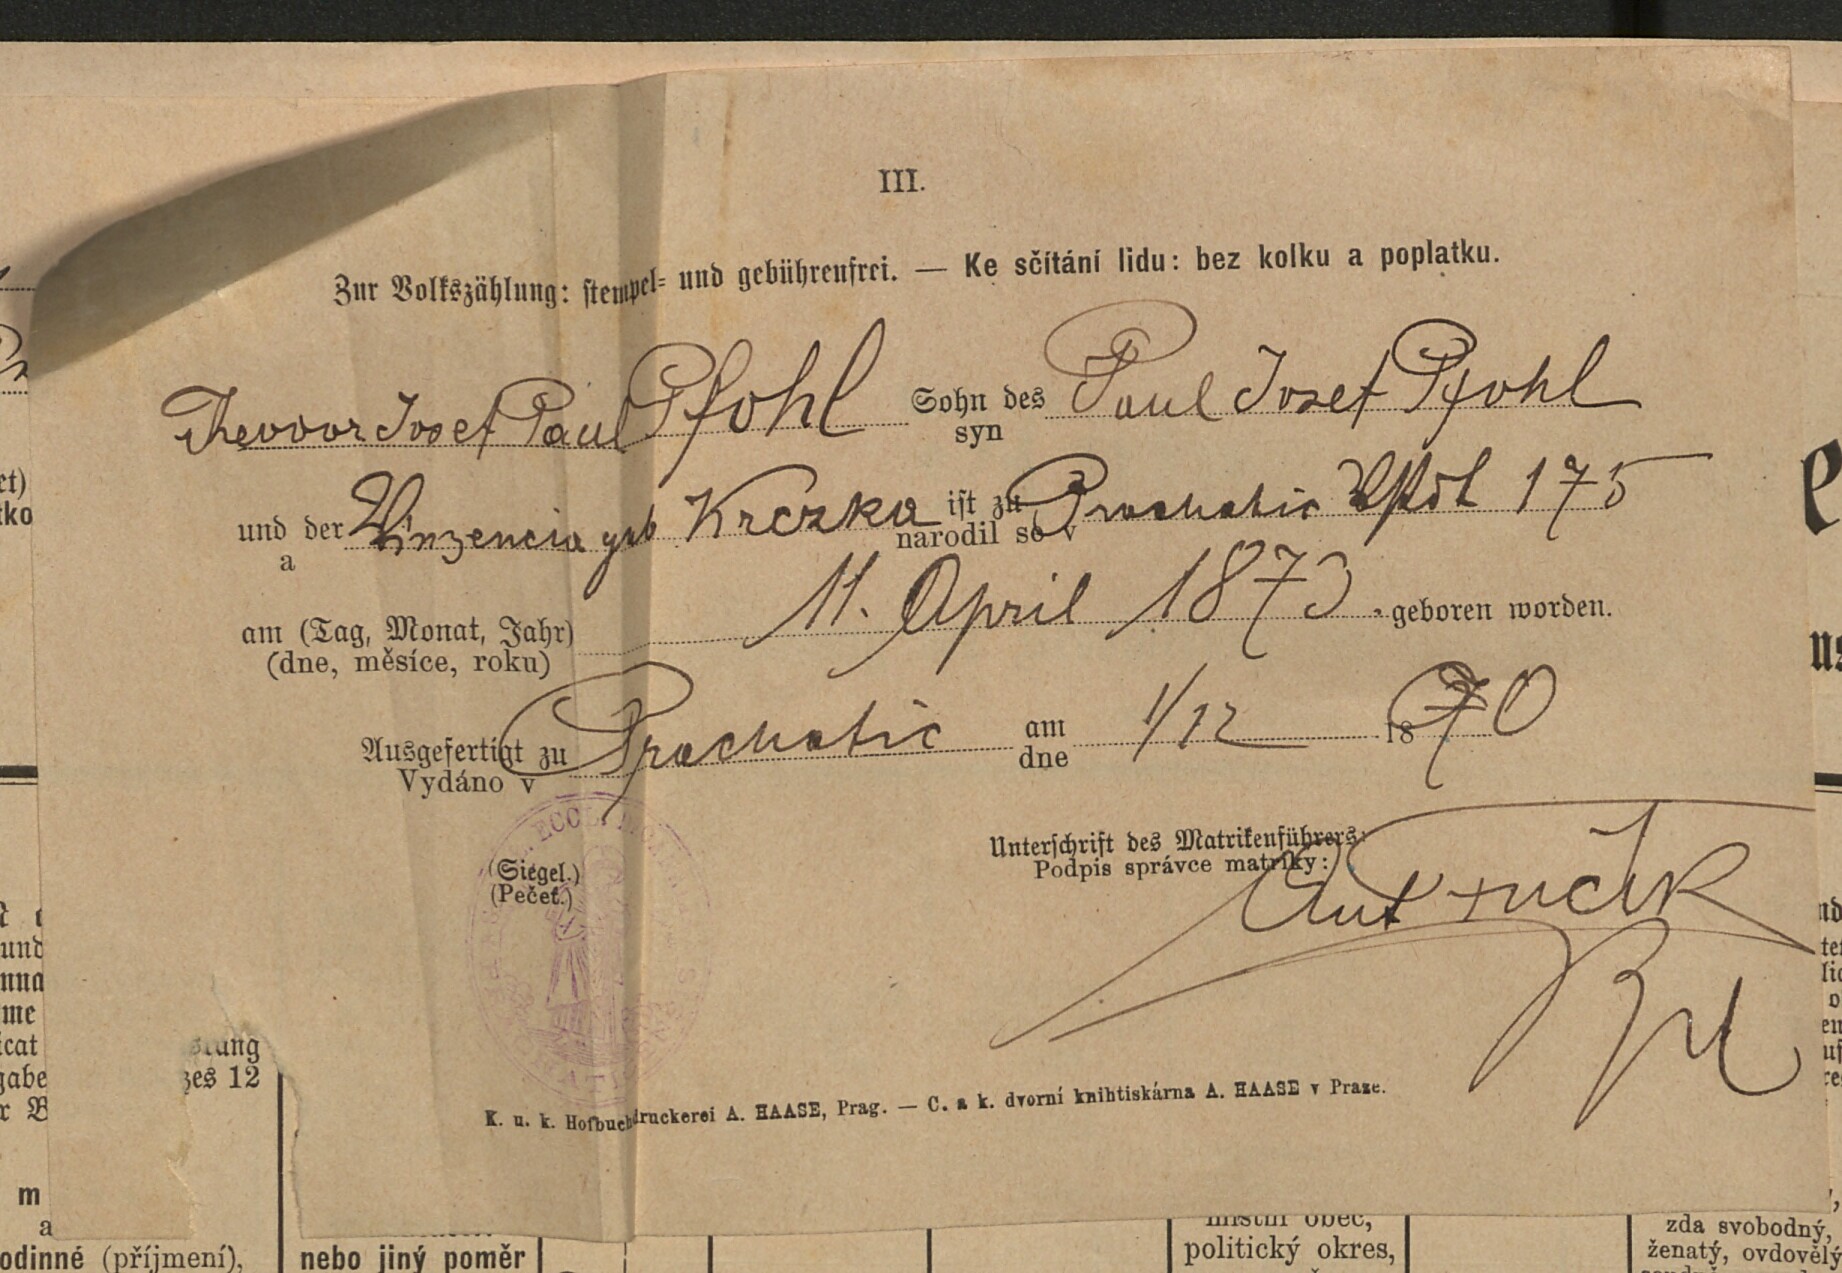 III.
Zur Volkszählung: stempel- und gebührenfrei. — Ke sčítání lidu: bez kolku a poplatku.
Theodor Josef Paul Pfohl Sohn des Paul Josef Pfohl
syn
und der Vinzencia geb Krczka ist zu Prachatic 175
a narodil se v
am (Tag, Monat, Jahr) 11. April 1873 geboren worden.
(dne, měsíce, roku)
Ausgefertigt zu Prachatic am 1/12 1890
Vydáno v dne
(Siegel.)
(Pečeť.)
Unterschrift des Matrikenführers:
Podpis správce matriky:
Ant
K. u. k. Hofbuchdruckerei A. HAASE, Prag. — C. a k. dvorní knihtiskárna A. HAASE v Praze.
zes 12
odinné (příjmení),
nebo jiný poměr
místní obec,
politický okres,
zda svobodný,
ženatý, ovdovělý